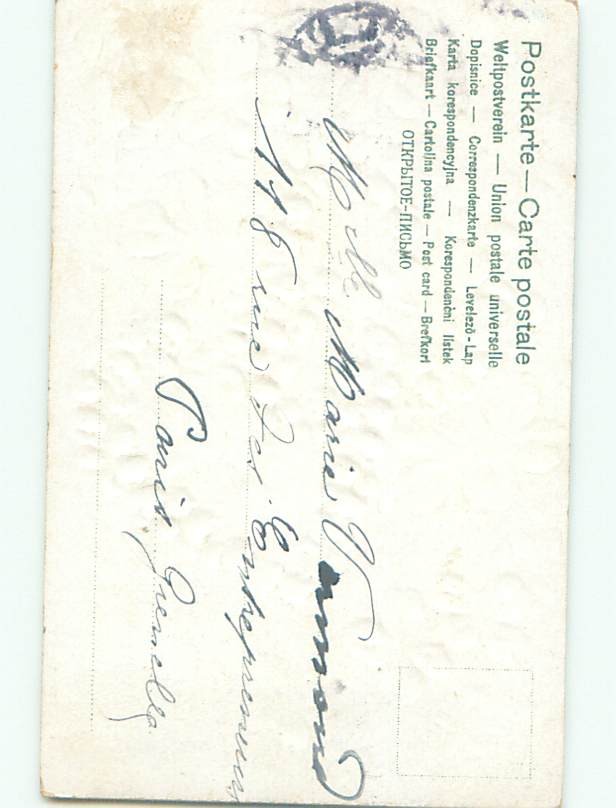 Postkarte — Carte postale
Weltpostverein — Union postale universelle
Dopisnice — Correspondenzkarte — Levelező-Lap
Karta korespondencyjna — Korespondenční lístek
Briefkaart — Cartolina postale — Post card — Brefkort
ОТКРЫТОЕ-ПИСЬМО
Marie
118 rue des Entrepreneurs
Paris Grenelle